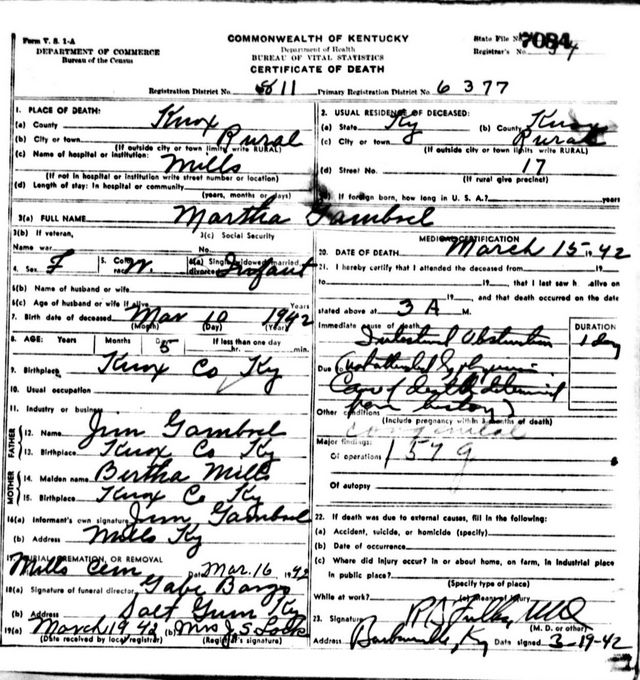 Form V. S. 1-A
DEPARTMENT OF COMMERCE
Bureau of the Census
COMMONWEALTH OF KENTUCKY
Department of Health
BUREAU OF VITAL STATISTICS
CERTIFICATE OF DEATH
State File No. 7084
Registrar's No. 34
Registration District No. 511 Primary Registration District No. 6377
1. PLACE OF DEATH:
(a) County Knox
(b) City or town Rural
(If outside city or town limits write RURAL)
(c) Name of hospital or institution: Mills
(If not in hospital or institution write street number or location)
(d) Length of stay: In hospital or community
(years, months or days)
2. USUAL RESIDENCE OF DECEASED:
(a) State Ky (b) County Knox
(c) City or town Rural
(If outside city or town limits write RURAL)
(d) Street No. 17
(If rural give precinct)
(e) If foreign born, how long in U. S. A.? years
3(a) FULL NAME Martha Gambrel
3(b) If veteran, 3(c) Social Security
Name war No.
4. Sex F 5. Color or race W. 6(a) Single, widowed, married, divorced Infant
6(b) Name of husband or wife
6(c) Age of husband or wife if alive Years
7. Birth date of deceased Mar 10 1942
(Month) (Day) (Year)
8. AGE: Years Months Days If less than one day
5 hr. min.
9. Birthplace Knox Co Ky
10. Usual occupation
11. Industry or business
FATHER
12. Name Jim Gambrel
13. Birthplace Knox Co Ky
MOTHER
14. Maiden name Bertha Mills
15. Birthplace Knox Co Ky
16(a) Informant's own signature Jim Gambrel
(b) Address Mills Ky
17. BURIAL, CREMATION, OR REMOVAL
Mills Cem Date Mar. 16 1942
18(a) Signature of funeral director Gabe Bargo
(b) Address Salt Gum Ky
19(a) March 19 42 (b) Mrs J. S. Lock
(Date received by local registrar) (Registrar's signature)
MEDICAL CERTIFICATION
20. DATE OF DEATH March 15 1942
21. I hereby certify that I attended the deceased from 19
to 19, that I last saw h alive on
19, and that death occurred on the date
stated above at 3 A M.
Immediate cause of death DURATION
Intestinal Obstruction 1 day
Due
Cause of death determined
from history)
Other conditions
(Include pregnancy within 3 months of death)
congenital
Major findings:
Of operations 157g
Of autopsy
22. If death was due to external causes, fill in the following:
(a) Accident, suicide, or homicide (specify)
(b) Date of occurrence
(c) Where did injury occur? In or about home, on farm, in industrial place
in public place?
(Specify type of place)
While at work? (e) Means of injury
23. Signature MD
(M. D. or other)
Address Barbourville, Ky Date signed 3-19-42